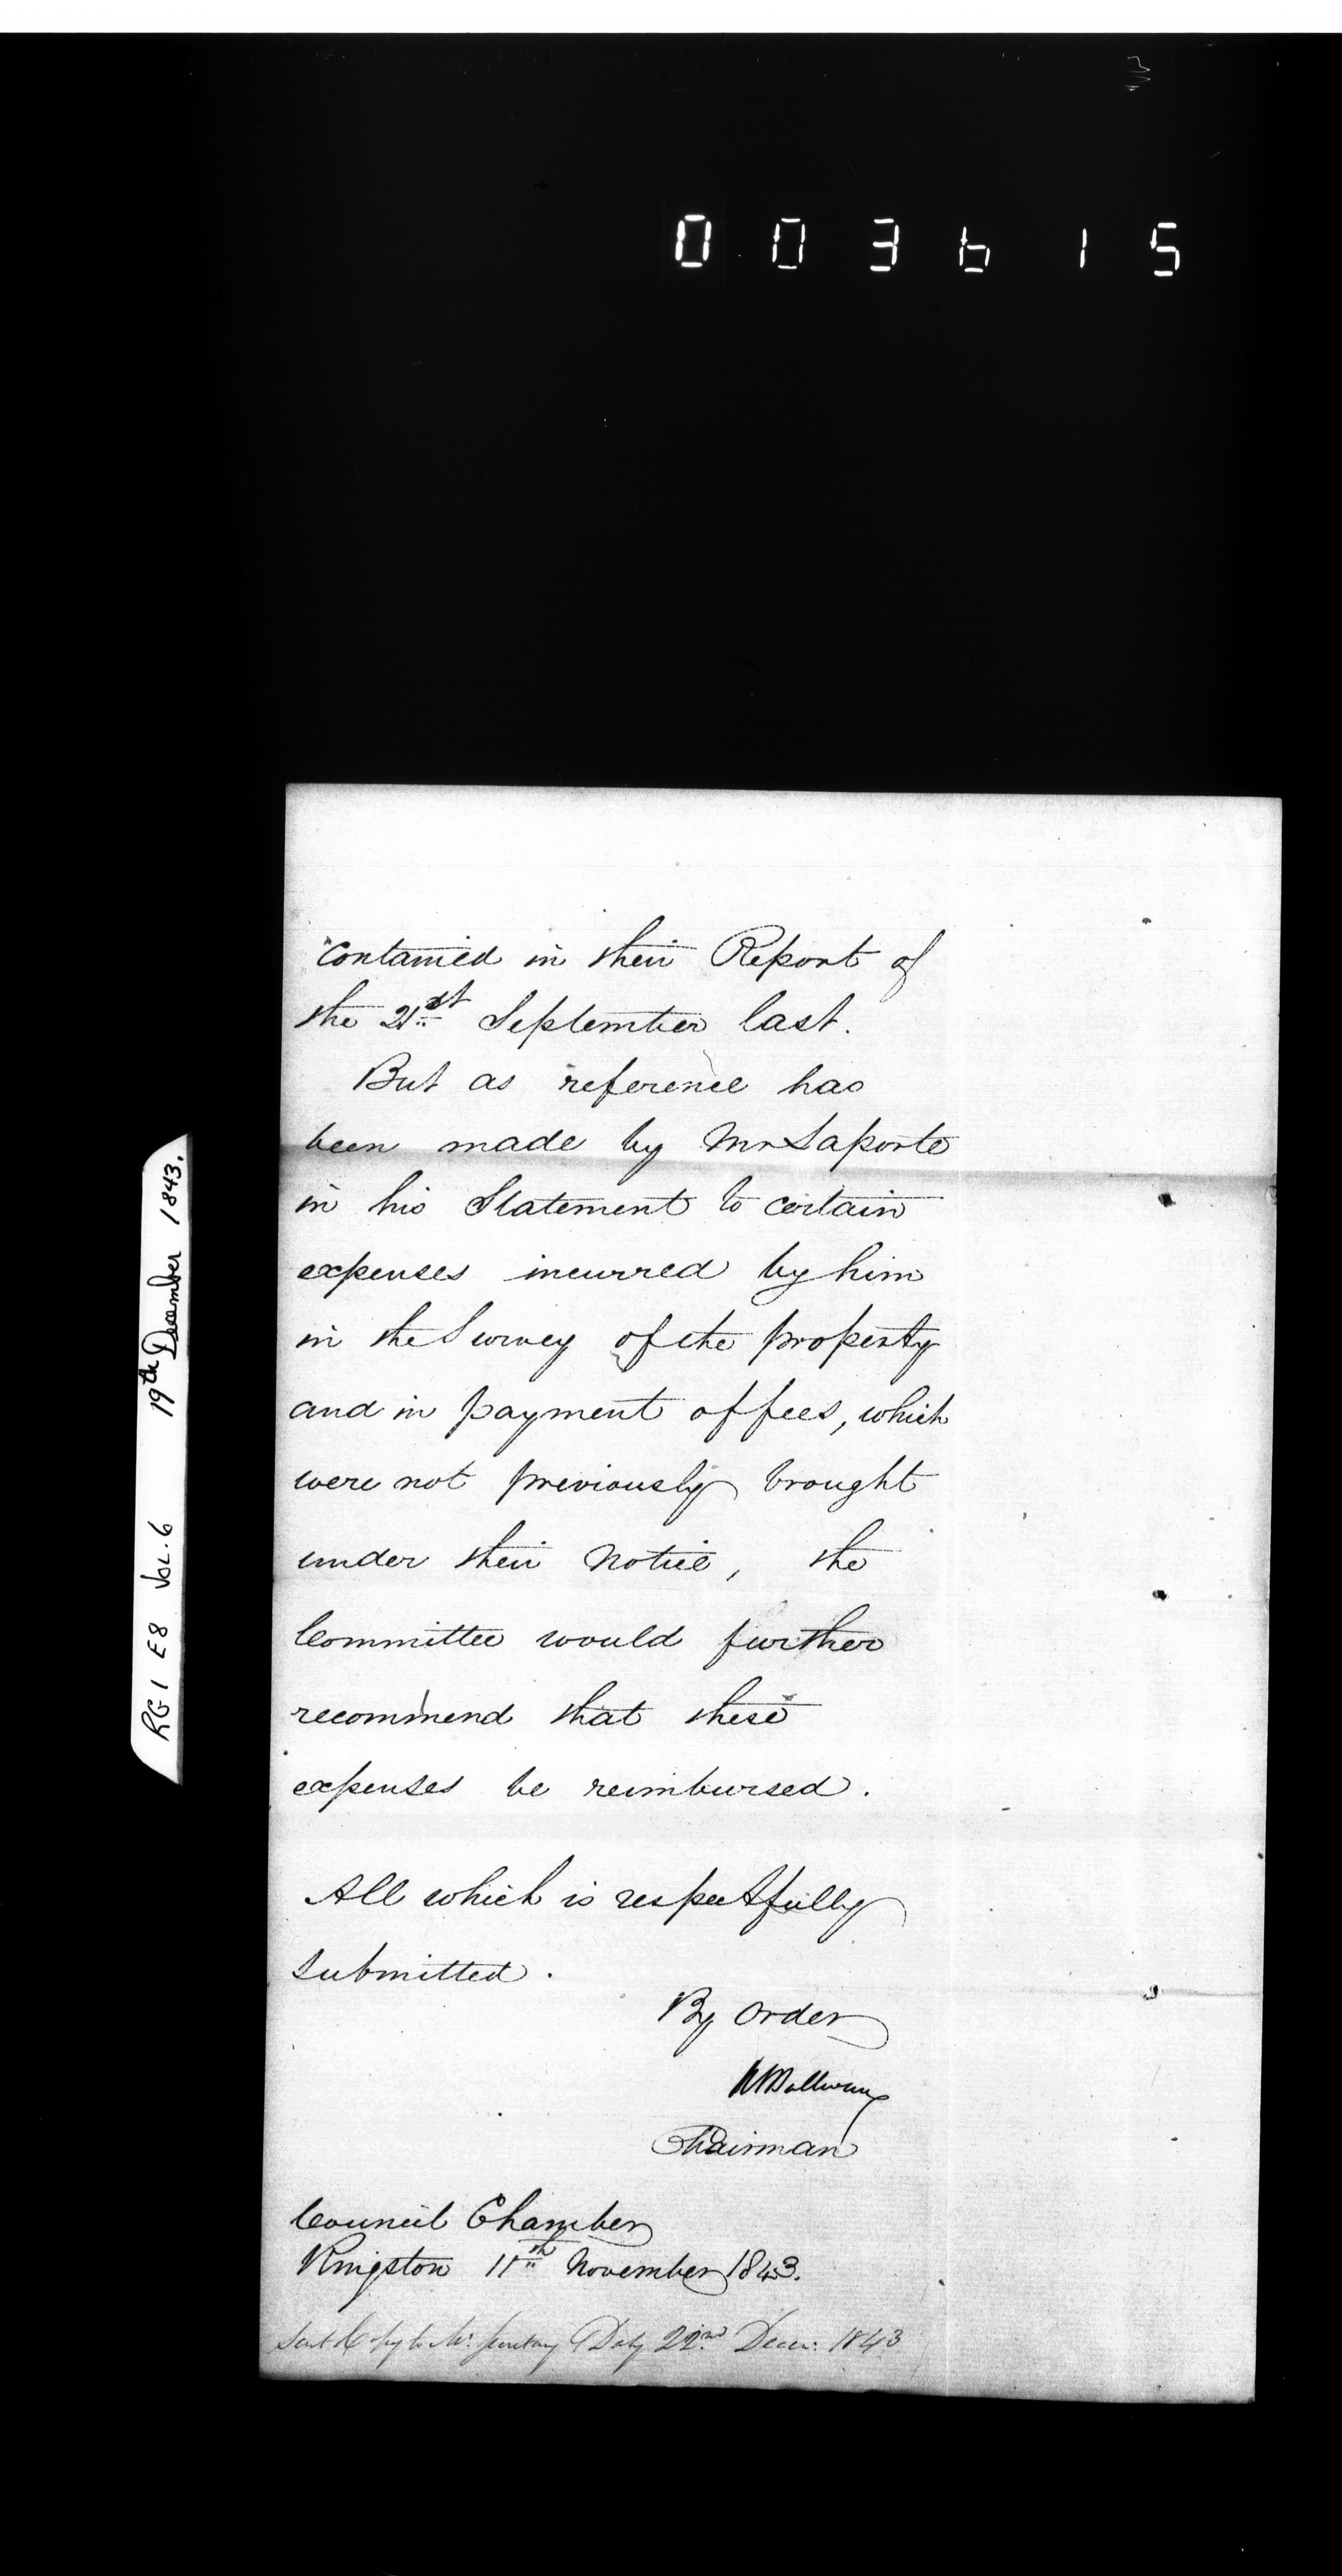 003615
RG1 E8 Vol. 6 19th December 1843.
contained in their Report of
the 21st September last.
But as reference has
been made by Mr Laporte
in his Statement to certain
expenses incurred by him
in the Survey of the property
and in payment of fees, which
were not previously brought
under their notice, the
Committee would further
recommend that these
expenses be reimbursed.
All which is respectfully
submitted.
By Order
Chairman
Council Chamber
Kingston 11th November 1843.
Sent Copy to Mr. Secretary Daly 22nd Decr. 1843